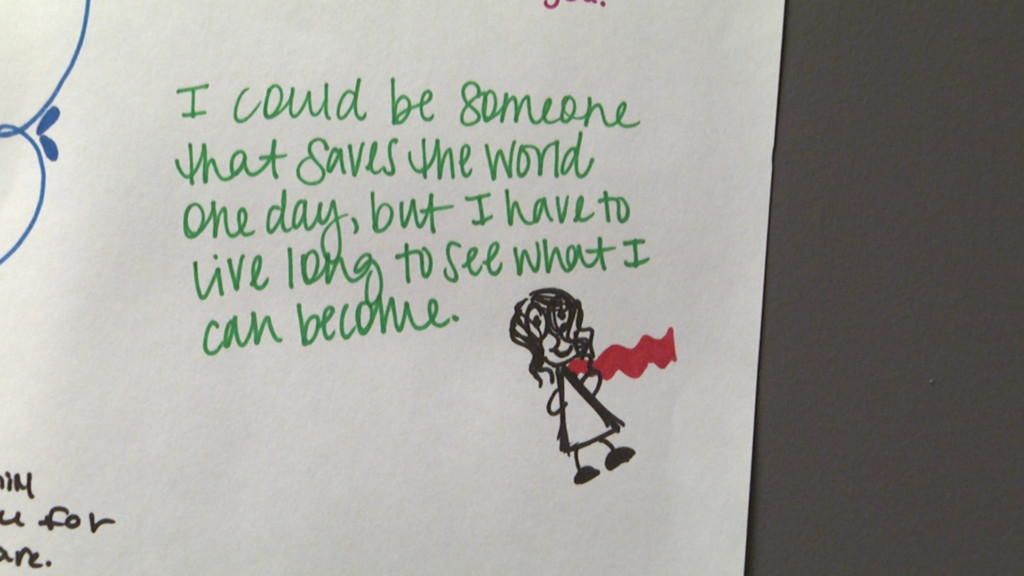 you.
I could be someone
that saves the world
one day, but I have to
live long to see what I
can become.
for